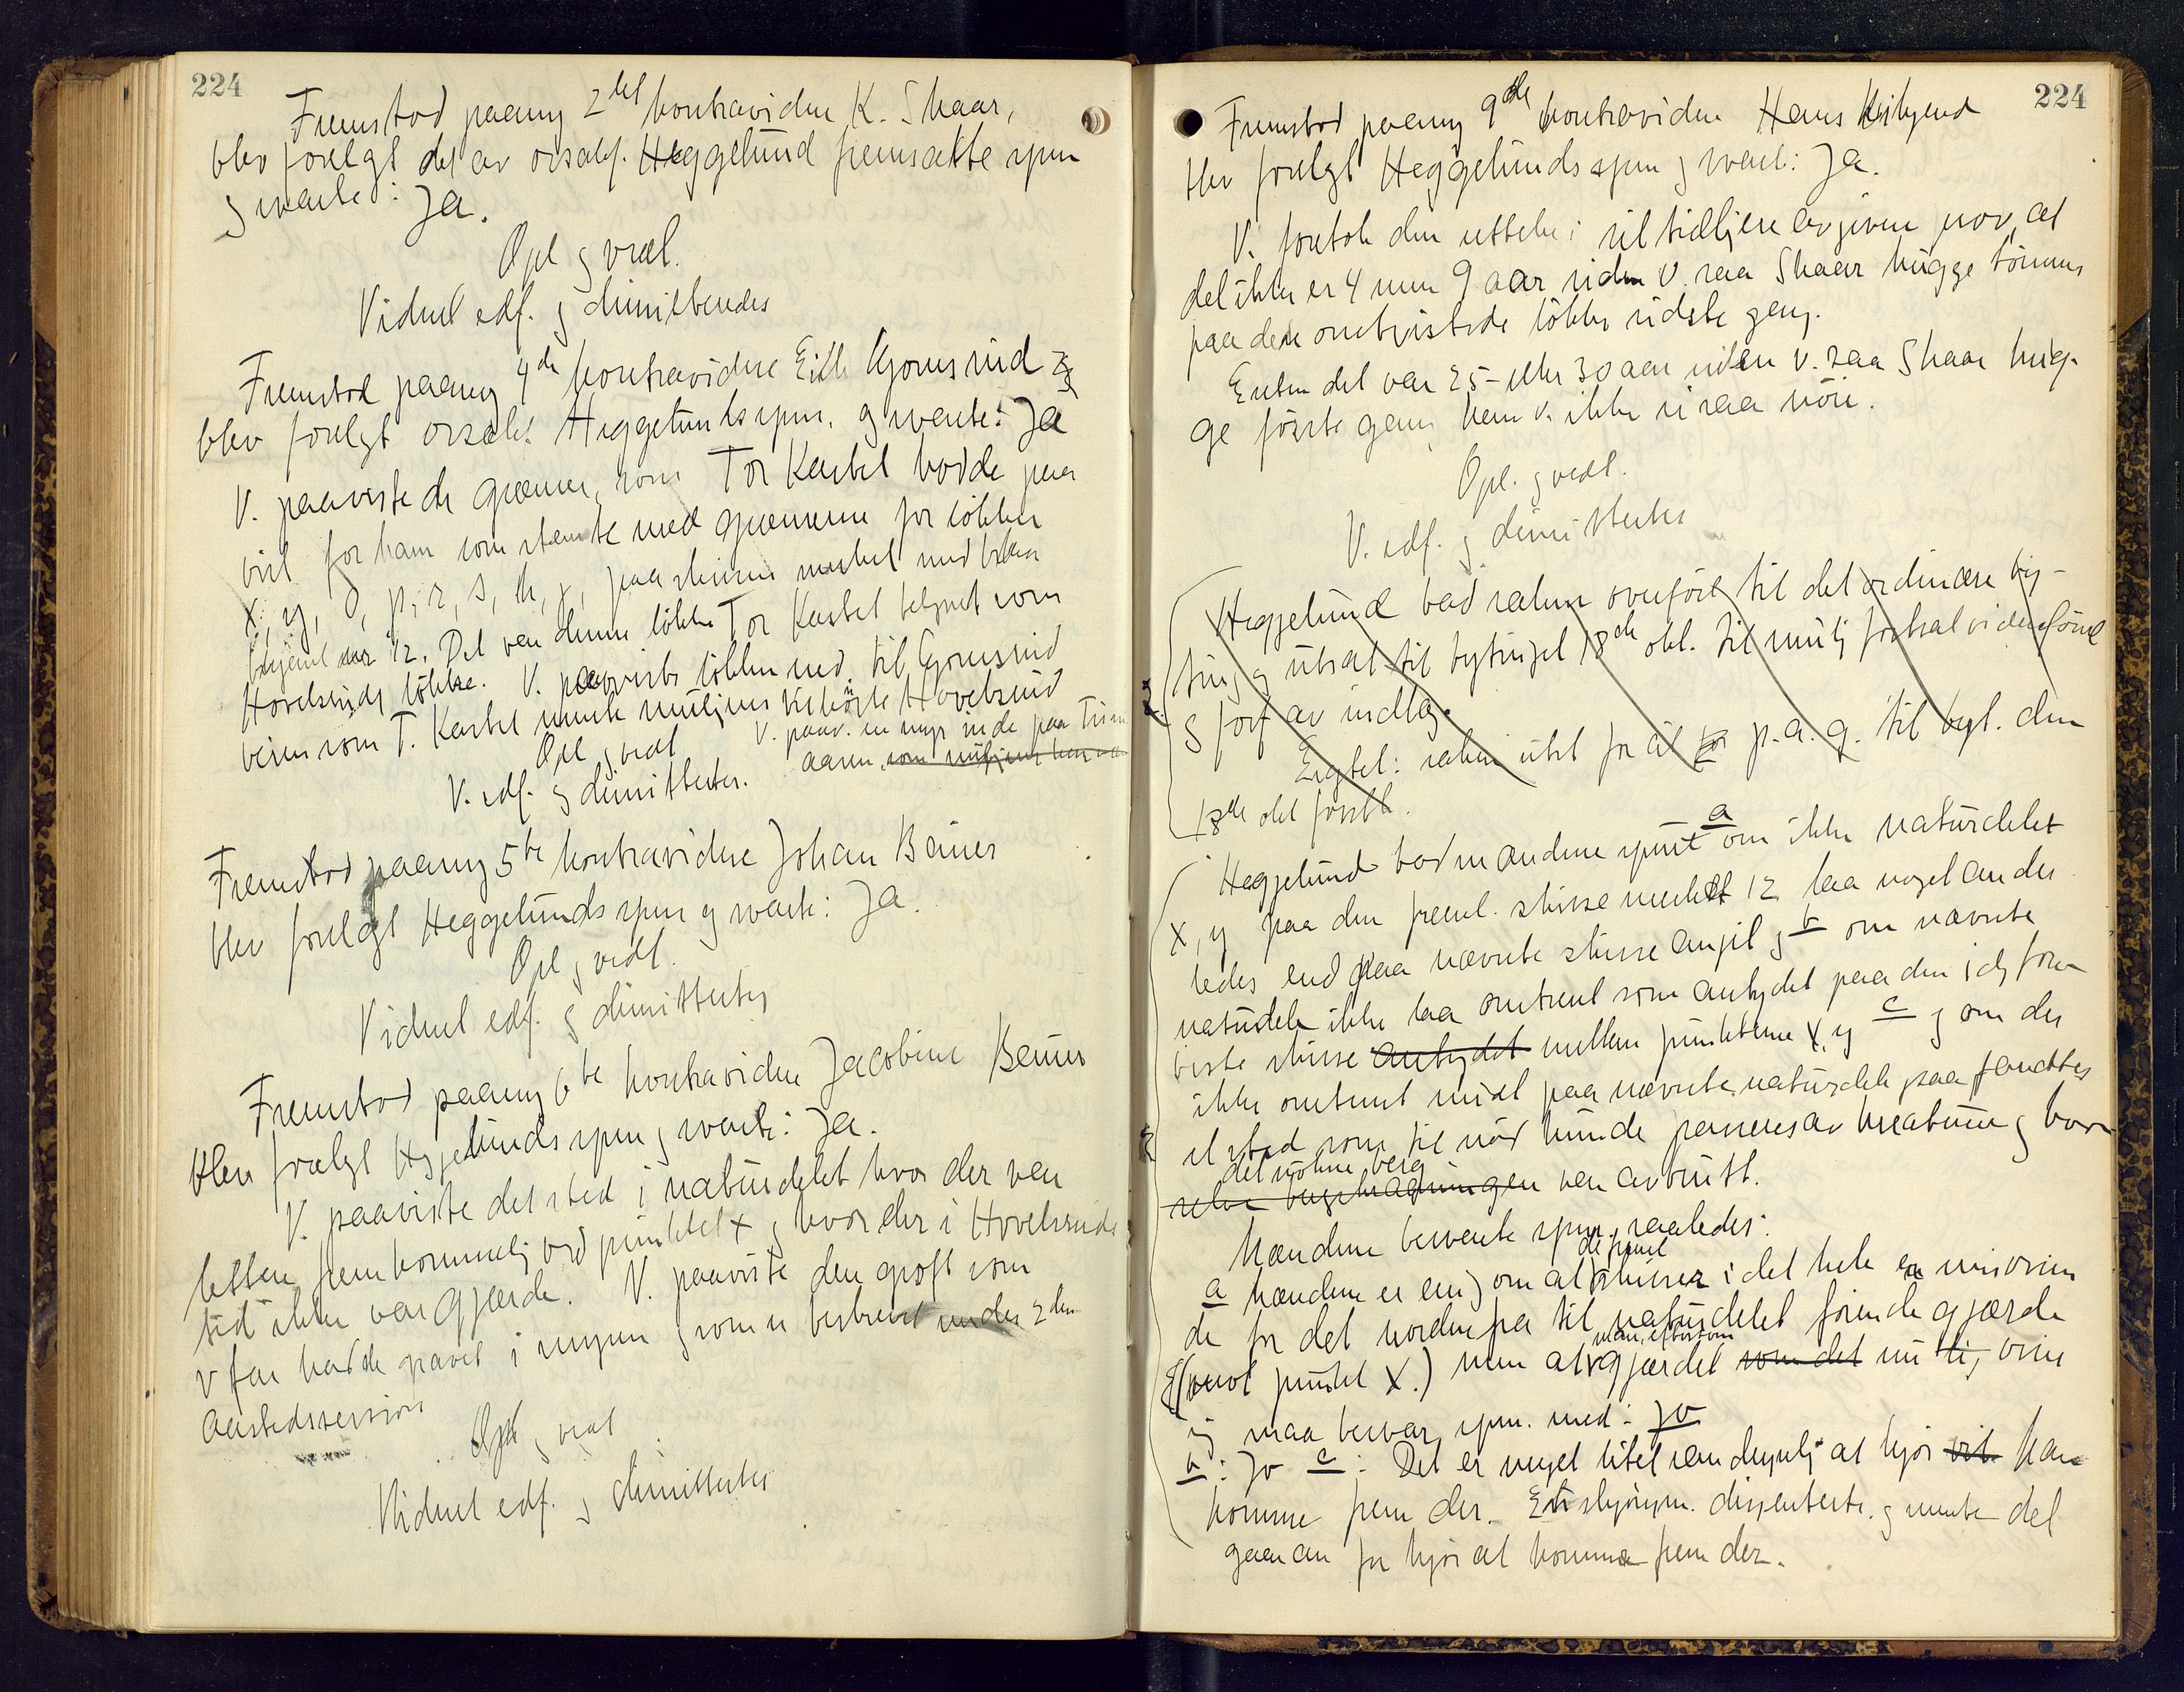 224
Fremstod paany 2det kontravidne K. Skaar,
blev forelagt det av orsakf. Heggelund fremsatte spm
g svarte: Ja.
Opl g vedt.
Vidnet edf. g dimitteredes
Fremstod paany 4de kontravidne
blev forelagt orsakf. Heggelunds spm. g svarte: Ja
V. paaviste de grænser, som Tor Kastet hadde paa
vist for ham som stemte med grænserne for løkken
x, y, o, p, r, s, paa skissen merket med
12. Det var denne løkke Tor Kastet betegnet som
Hovelsruds løkke. V. paaviste løkken ned til
veien som T. Kastet mente muligens tilhørte Hovelsrud
Opl g vedt V. paav. en myr inde paa
V. edf. g dimitteertes. aasen, som
Fremstod paany 5te kontravidne Johan
blev forelagt Heggelunds spm g svarte: Ja.
Opl g vedt.
Vidnet edf. g dimittertes
Fremstod paany 6te kontravidne Jacobine
blev forelagt Heggelunds spm g svarte: Ja.
V. paaviste det sted i naturdelet hvor der var
lettere fremkommelig ved punktet x g hvor der i Hovelsruds
tid ikke var gjærde. V. paaviste den grøft som
v far hadde gravet i myren g som er beskrevet under 2den
aastedssession
Opl g vedt
Vidnet edf. g dimittertes
224
Fremstod paany 9de kontravidne Hans
blev forelagt Heggelunds spm g svarte: Ja.
V. foretok den rettelse i sit tidligere avgivne prov, at
det ikke er 4 men 9 aar siden V. saa Skaar hugge tømmer
paa den omtvistede løkke sidste gang.
Enten det var 25- eller 30 aar siden v. saa Skaar hug-
ge første gang kan v. ikke si saa nøie.
Opl. g vedt.
V. edf. g dimittertes
Heggelund bad saken overført til det ordinære byg-
ting g utsat til bytinget 18de okt. til mulig fortsat vidneførsel
g forf av indlæg.
Eragtet: saken utst for at p. a. g. til bygt. den
18de okt førstk.
Heggelund bad mændene spurt a om ikke naturdelet
x, y paa den freml. skisse merket 12 laa noget ander
ledes end paa nævnte skisse angit g b om nævnte
naturdele ikke laa omtrent som antydet paa den idg fore-
viste skisse antydet mellem punkterne x, y c g om der
ikke omtrent midt paa nævnte naturdele saa fandtes
et sted som til nød kunde passeres av kreaturer g hvor
det nøkne berg
selve bergskraaningen var avbrutt.
Mændene besvarte spm. saaledes:
de freml
a mændene er enig om at skisser i det hele er misvisen
de for det nordenfra til naturdelet førende gjærde
man, eftersom
(mot punktet x.) men at gjærdet som det nu lig viser
sig maa besvar. spm. med: Jo
b: Jo c: Det er meget litet sandsynlig at kjør vil kan
komme frem der. En skjønsm. dissenterte g mente det
gaar an for kjør at komme frem der.